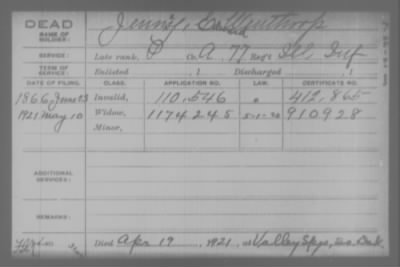 DEAD
NAME OF SOLDIER: Jenney,
SERVICE: Late rank, P Co. A, 77 Reg't Ill Inf
TERM OF SERVICE: Enlisted , 1 Discharged , 1
DATE OF FILING. CLASS. APPLICATION NO. LAW. CERTIFICATE NO.
1866, June 23 Invalid, 110.546 412.865
1921 May 10 Widow, 1174245 5-1-20 910928
Minor,
ADDITIONAL SERVICES:
REMARKS:
Died Apr 19, 1921, at Valley Spgs, So. Dak.